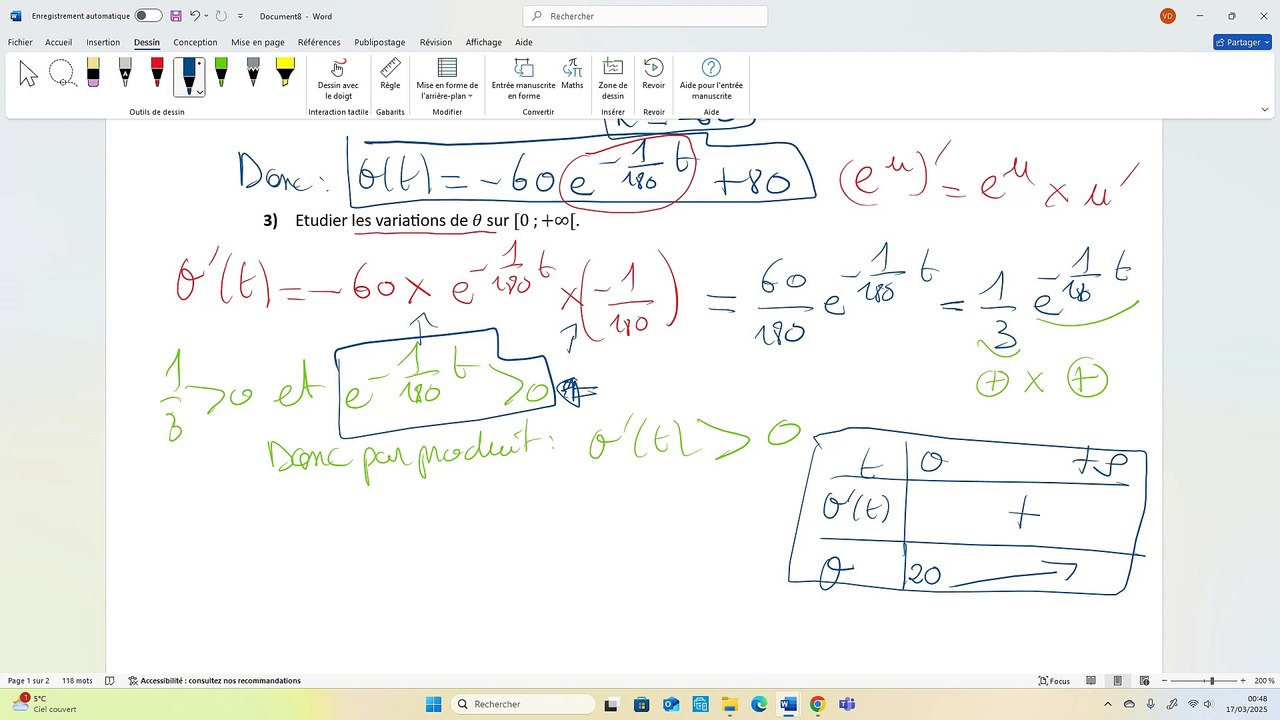 Enregistrement automatique
Document8 - Word
Rechercher
VD
Fichier Accueil Insertion Dessin Conception Mise en page Références Publipostage Révision Affichage Aide
Partager
Dessin avec le doigt
Règle
Mise en forme de l'arrière-plan
Entrée manuscrite en forme
Maths
Zone de dessin
Revoir
Aide pour l'entrée manuscrite
Outils de dessin
Interaction tactile
Gabarits
Modifier
Convertir
Insérer
Revoir
Aide
Donc : θ(t) = -60 e^(-1/180 t) + 80
(e^u)' = e^u × u'
3) Etudier les variations de θ sur [0 ; +∞[.
θ'(t) = -60 × e^(-1/180 t) × (-1/180) = 60/180 e^(-1/180 t) = 1/3 e^(-1/180 t)
1/3 > 0 et e^(-1/180 t) > 0
+ × +
Donc par produit : θ'(t) > 0
t 0 +∞
θ'(t) +
θ 20
Page 1 sur 2 118 mots Accessibilité : consultez nos recommandations Focus 200 %
1
5°C
Ciel couvert
Rechercher
00:48
17/03/2025